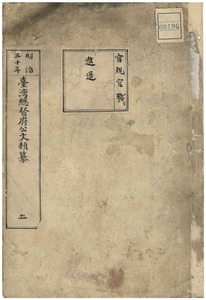 00196
官規官職
進退
明治
三十年
臺灣總督府公文類纂